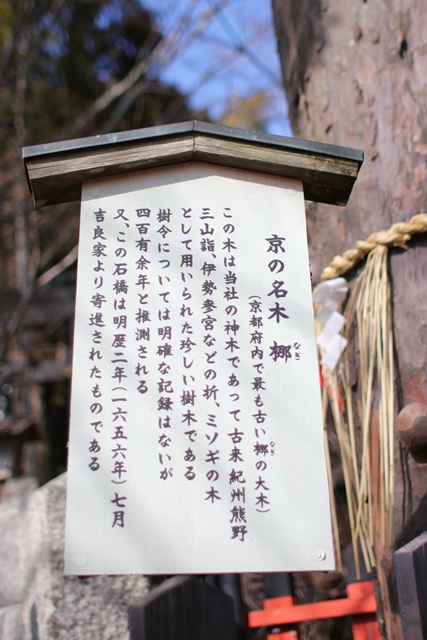 京の名木 梛
なぎ
（京都府内で最も古い梛の大木）
なぎ
この木は当社の神木であって古来 紀州熊野
三山詣、伊勢参宮などの折、ミソギの木
として用いられた珍しい樹木である
樹令については明確な記録はないが
四百有余年と推測される
又、この石橋は明歴二年（一六五六年）七月
吉良家より寄進されたものである